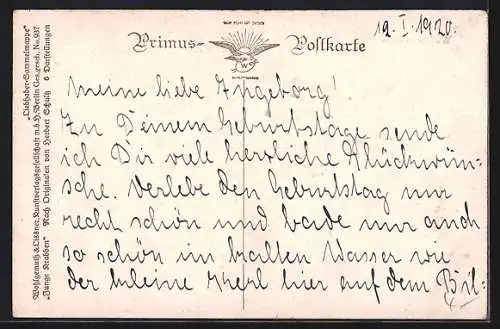 12. I. 1920.
Primus-Postkarte
W L
Meine liebe Ingeborg!
Zu Deinem Geburtstage sende
ich Dir viele herzliche Glückwün-
sche. Verlebe den Geburtstag nur
recht schön und bade nur auch
so schön im kalten Wasser wie
der kleine Kerl hier auf dem Bil-
Wohlgemuth & Lissner, Kunstverlagsgesellschaft m.b.H. Berlin Ges. gesch. No. 937 "Liebhaber-Sammelmappe"
"Junge Krabben" Nach Originalen von Herbert Schulz 6 Darstellungen